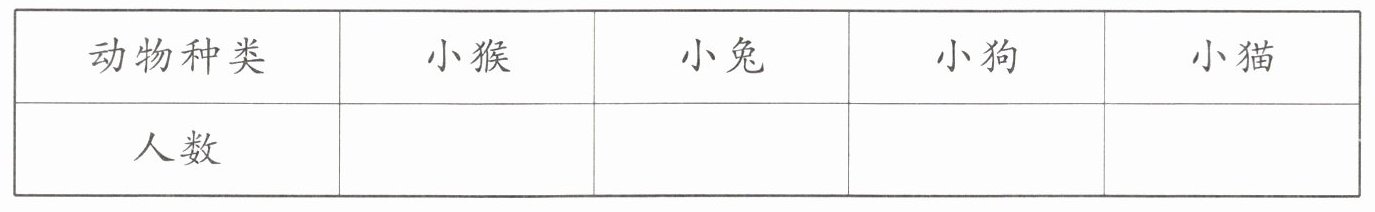 动物种类 小猴 小兔 小狗 小猫
人数